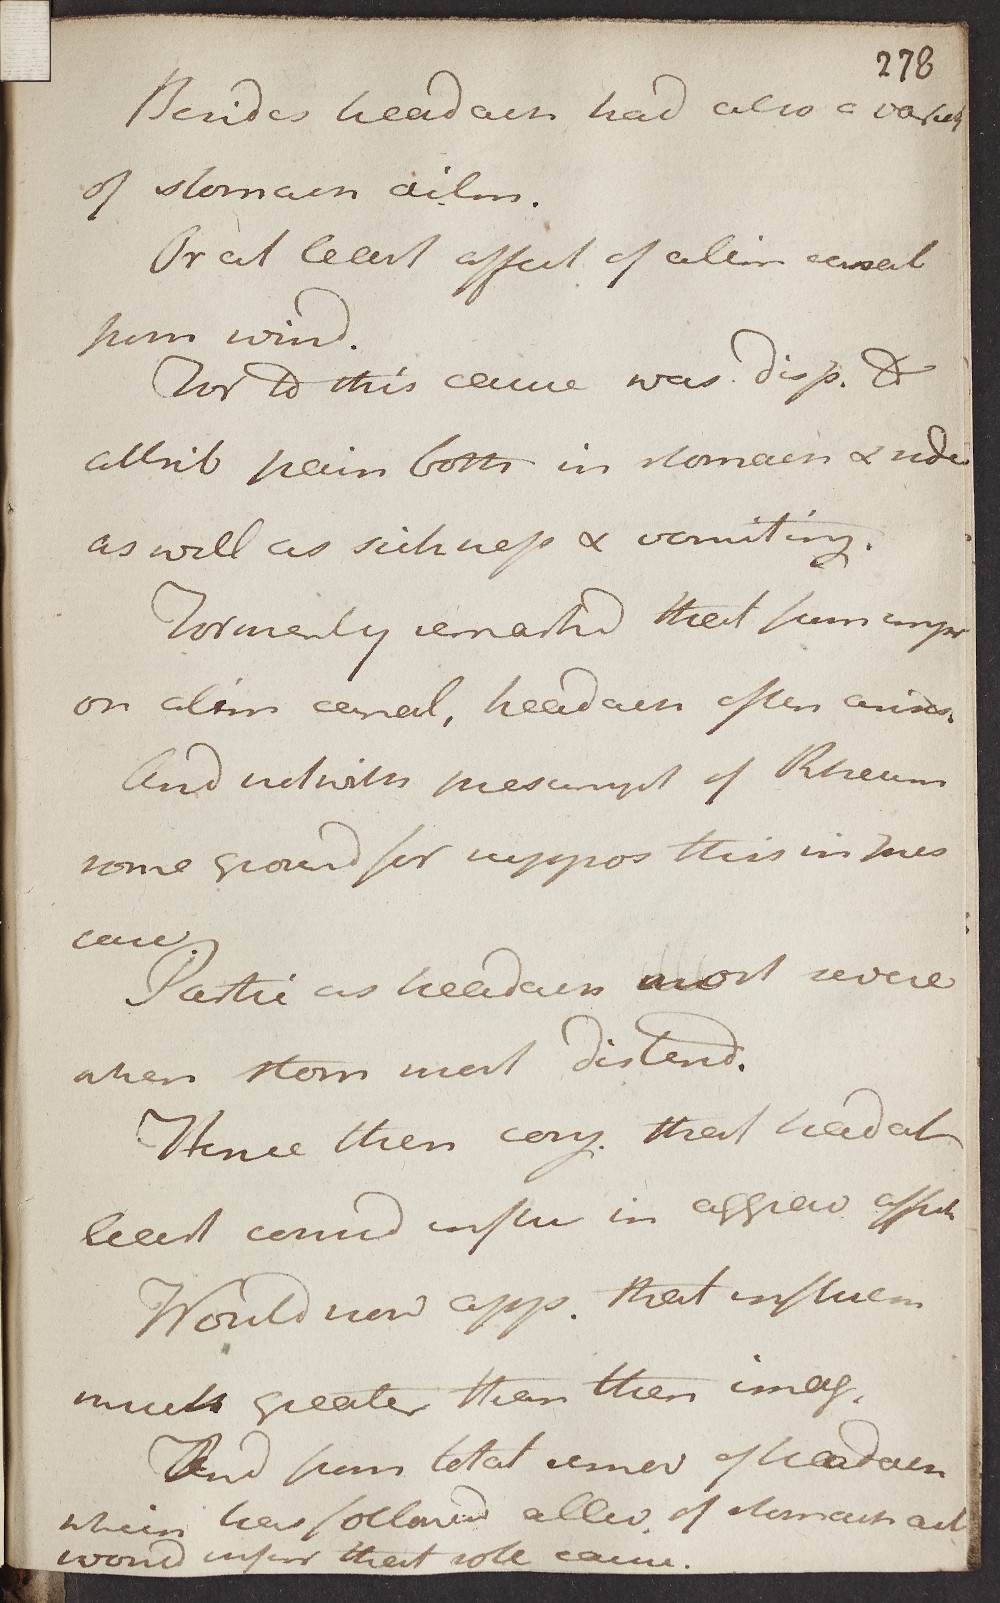 278
Besides headach had also a variety
of stomach ailm.
Or at least affect of alim canal
from wind.
For to this cause was disp. to
attrib pain both in stomach & side
as well as sickness & vomiting.
Formerly remarkd that from impr
on alim canal, headach often arises.
And notwith prescript of Rheum
some ground for suppos this in pres
case.
Partic as headach most severe
when stom most distend.
Hence then conj. that had at
least consid influ in aggrav affect
Would now app. that influen
much greater than then imag.
And from total remov of headach
which has followed allev. of stomach ail
would infer that sole cause.